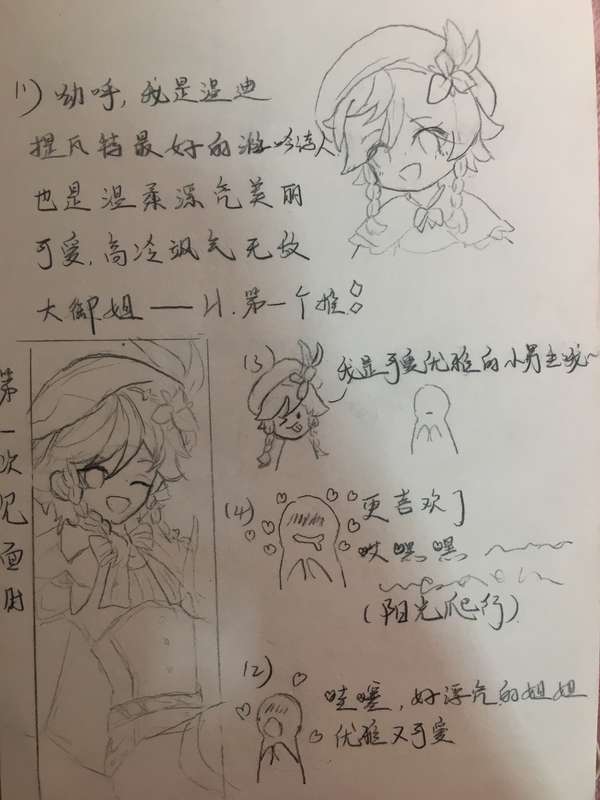 (1) 劲呼，我是温迪
提瓦特最好的游吟诗人
也是温柔漂亮美丽
可爱，高冷飒气无敌
大御姐——H.第一个推
第一次见面时
(3) 我是可爱优雅的小男生诶~
(4) 更喜欢了
哎嘿嘿
(阳光爬行)
(2) 哇噻，好漂亮的姐姐
优雅又可爱